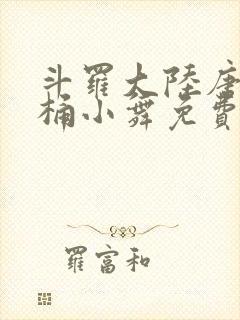 斗羅大陸唐
桶小舞免費
羅富和